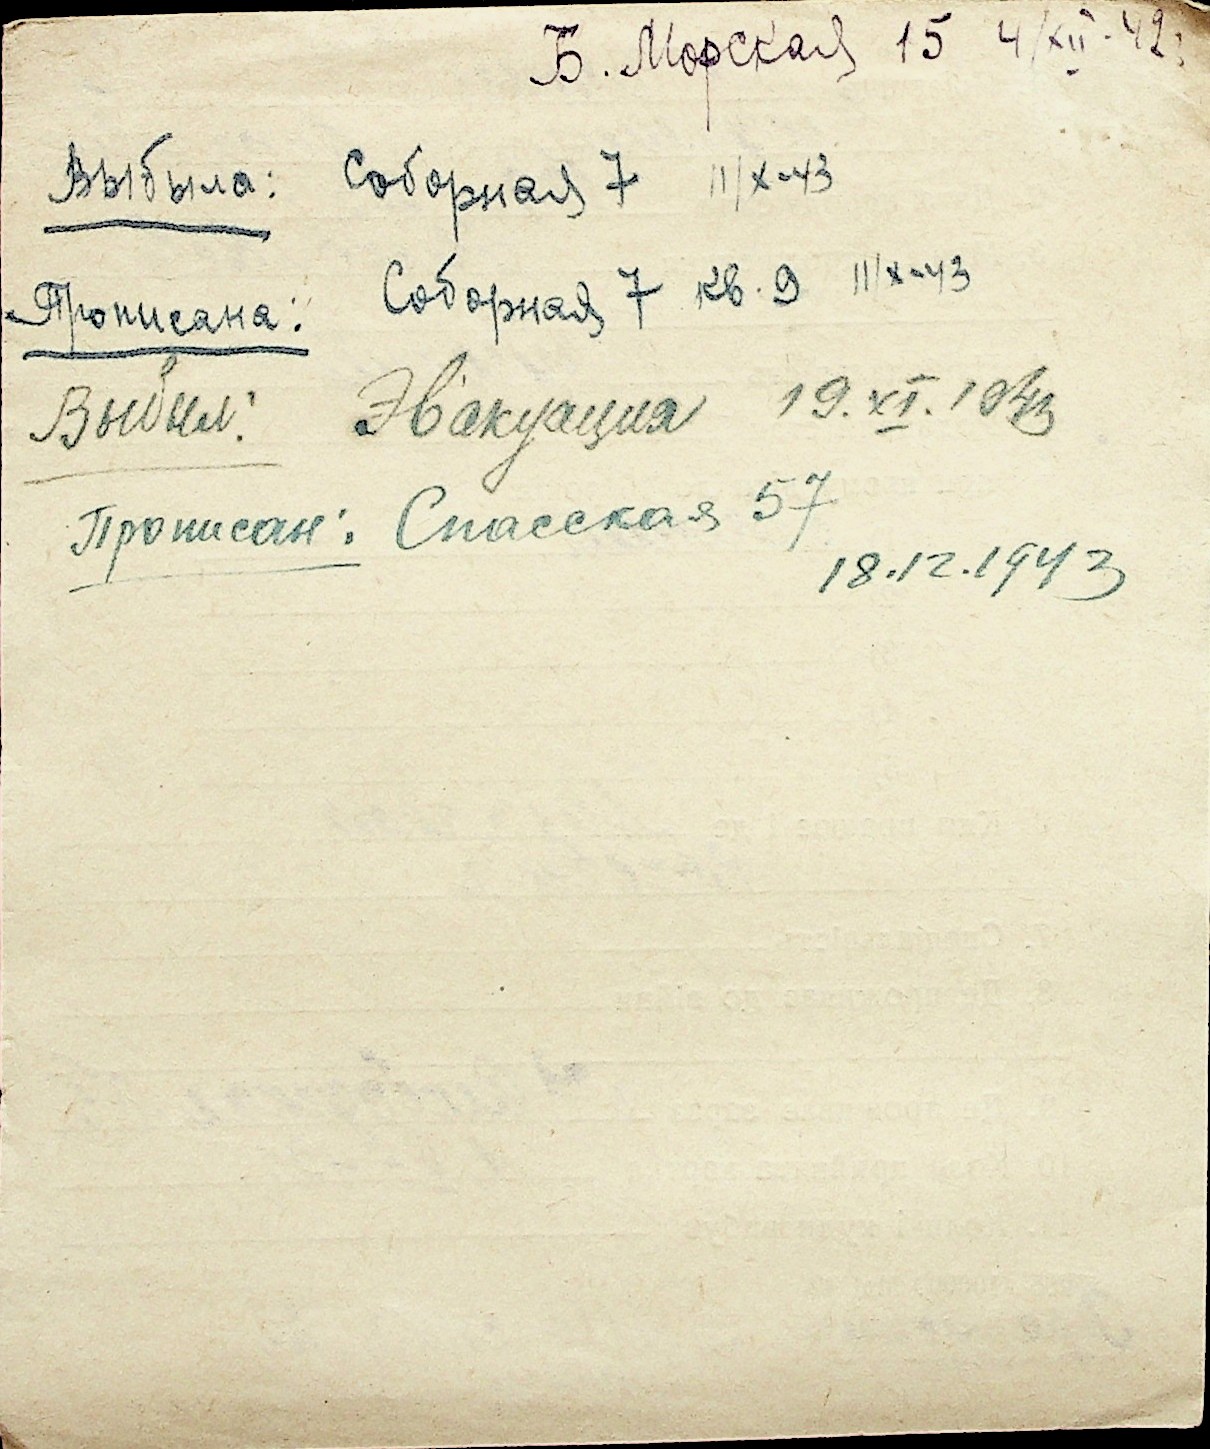 Б. Морская 15 4/XII-42г
Выбыла: Соборная 7 11/X-43
Прописана: Соборная 7 кв. 9 11/X-43
Выбыл: Эвакуация 19.XI.1943
Прописан: Спасская 57
18.12.1943